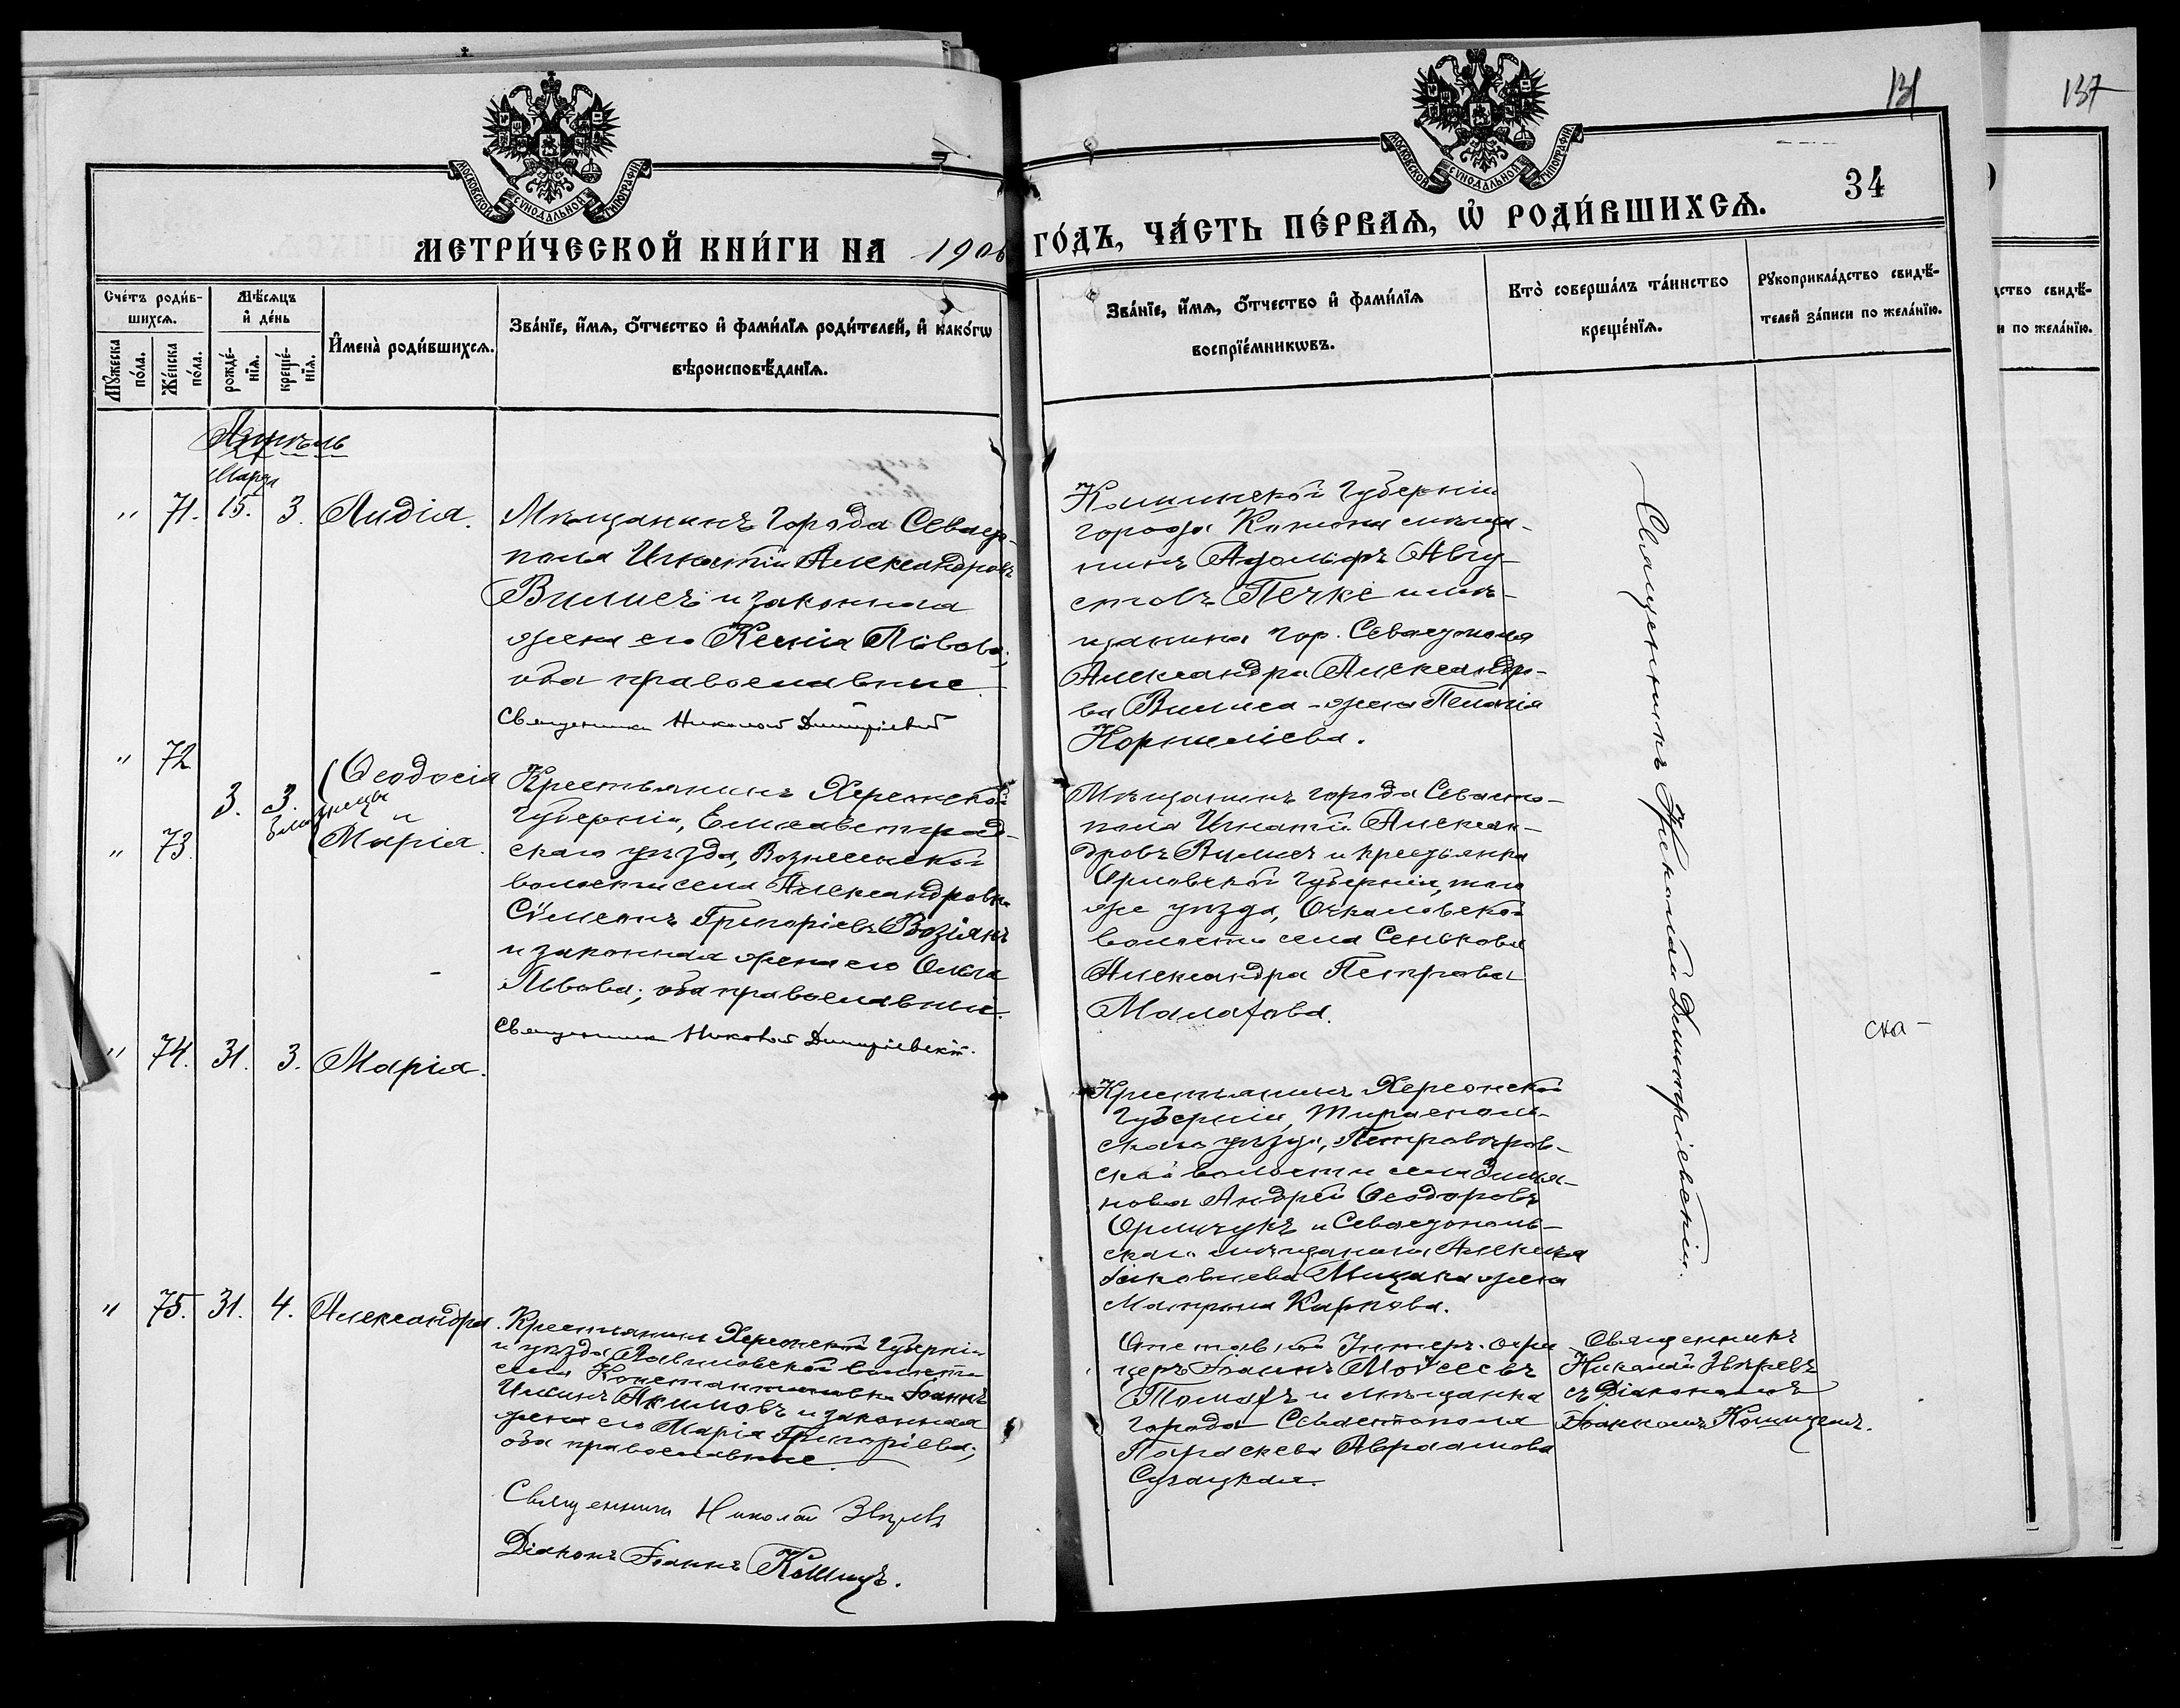 131
137
МОСКОВСКОЙ СѴНОДАЛЬНОЙ ТИПОГРАФІИ
МОСКОВСКОЙ СѴНОДАЛЬНОЙ ТИПОГРАФІИ
34
МЕТРИ́ЧЕСКОЙ КНИ́ГИ НА 1906
ГО́ДЪ, ЧА́СТЬ ПЕ́РВАѦ, Ѡ҆ РОДИ́ВШИХСѦ.
Сче́тъ роди́в-
шихсѧ.
Мꙋ́жеска по́ла.
Же́нска по́ла.
Мѣ́сѧцъ
и҆ де́нь
рожде́-
нїѧ.
креще́-
нїѧ.
И҆мена̀ роди́вшихсѧ.
Зва́нїе, и҆́мѧ, ѻ҆́тчество и҆ фами́лїѧ роди́телей, и҆ како́гѡ
вѣроисповѣ́данїѧ.
Зва́нїе, и҆́мѧ, ѻ҆́тчество и҆ фами́лїѧ
воспрїе́мникѡвъ.
Кто̀ соверша́лъ та́инство
креще́нїѧ.
Рꙋкоприкла́дство свидѣ́-
телей за́писи по жела́нїю.
дство свидѣ́-
и по жела́нїю.
Апрѣль
Марта
" 71. 15. 3. Лидія.
Мѣщанинъ города Севасто-
поля Игнатій Александровъ
Вилисъ и законная
жена его Ксенія Львова;
оба православные
Священникъ Николай Димитріевскій
Губерніи
города мѣща-
нинъ Адольфъ Авгу-
стовъ Печке и мѣ-
щанина гор. Севастополя
Александра Александро-
ва Вилиса - жена Пелагія
Корнилієва.
Священникъ Николай Димитріевскій.
" 72
3. 3. близнецы
" 73.
Ѳеодосія
и
Марія.
Крестьянинъ Херсонской
Губерніи, Елисаветград-
скаго уѣзда, Вознесенской
волости села Александровки
Сѵмеонъ Григоріевъ Возіянъ
и законная жена его Ольга
Львова; оба православные.
Священникъ Николай Димитріевскій.
Мѣщанинъ города Севасто-
поля Игнатій Алексан-
дровъ Вилисъ и крестьянка
Орловской Губерніи, того
же уѣзда,
волости села Сенькова
Александра Петрова
Малахова.
" 74. 31. 3. Марія.
Крестьянинъ Херсонской
Губерніи, Тирасполь-
скаго уѣзда, Петровѣров-
ской волости села
Андрей Ѳеодоровъ
и Севастополь-
скаго мѣщанина Алексѣя
Іаковлева жена
Матрона Карпова.
ска-
" 75. 31. 4. Александра.
Крестьянинъ Херсонской Губерніи
и уѣзда волости
села Константиновки Іоаннъ
Акимовъ и законная
жена его Марія Григоріева;
оба православные.
Священникъ Николай Звѣревъ
Діаконъ Іоаннъ Кошицъ.
Отставной Унтеръ-офи-
церъ Іоаннъ Моѵсеевъ
и мѣщанка
города Севастополя
Параскева Авраамова
Священникъ
Николай Звѣревъ
съ Діакономъ
Іоанномъ Кошицемъ.